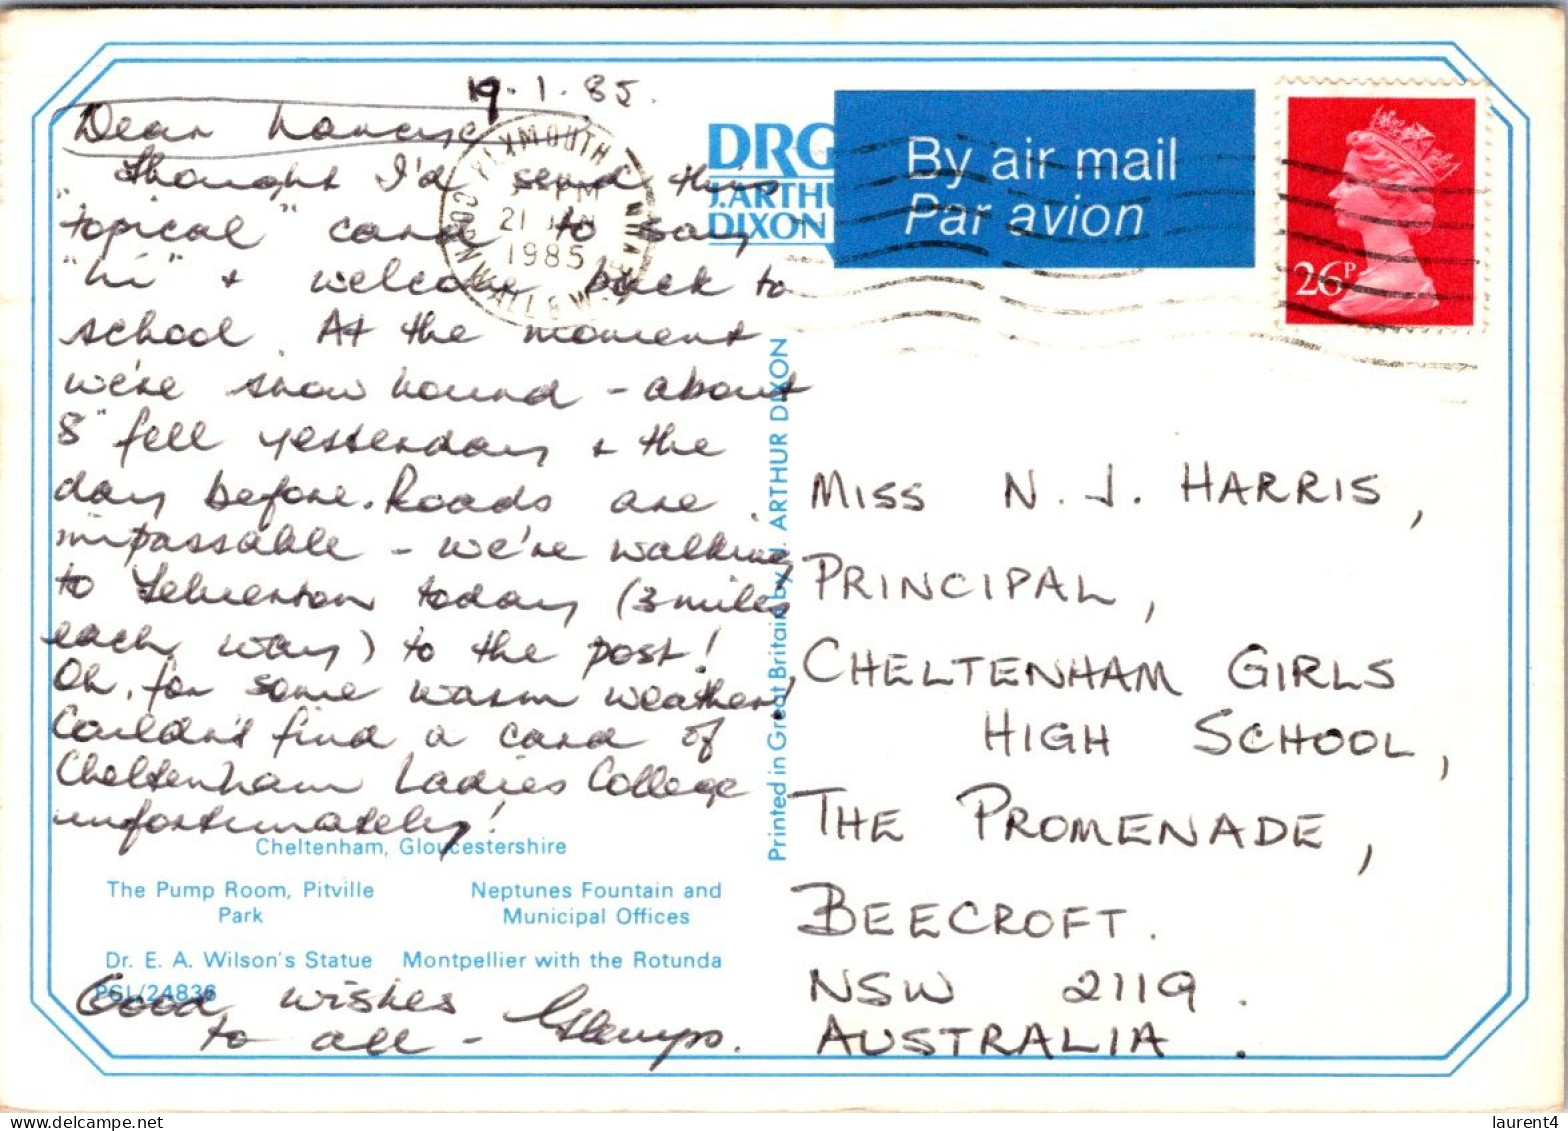 19.1.85.
Dear
Thought I'd send this
"topical" card to say
"hi" + welcome back to
school. At the moment
we're snow bound - about
8" fell yesterday & the
day before. Roads are
impassable - we're walking
to Yelverton today (3 miles
each way) to the post!
Oh, for some warm weather!
Couldn't find a card of
Cheltenham Ladies College
unfortunately!
Cheltenham, Gloucestershire
The Pump Room, Pitville
Park
Neptunes Fountain and
Municipal Offices
Dr. E. A. Wilson's Statue
Montpellier with the Rotunda
PGL/24836
Good wishes
to all -
DRG
J.ARTHU
DIXON
Printed in Great Britain by J. ARTHUR DIXON
PLYMOUTH
CORNWALL & W.
PM
21 JAN
1985
By air mail
Par avion
26P
MISS N. J. HARRIS,
PRINCIPAL,
CHELTENHAM GIRLS
HIGH SCHOOL,
THE PROMENADE,
BEECROFT.
NSW 2119.
AUSTRALIA.
laurent4